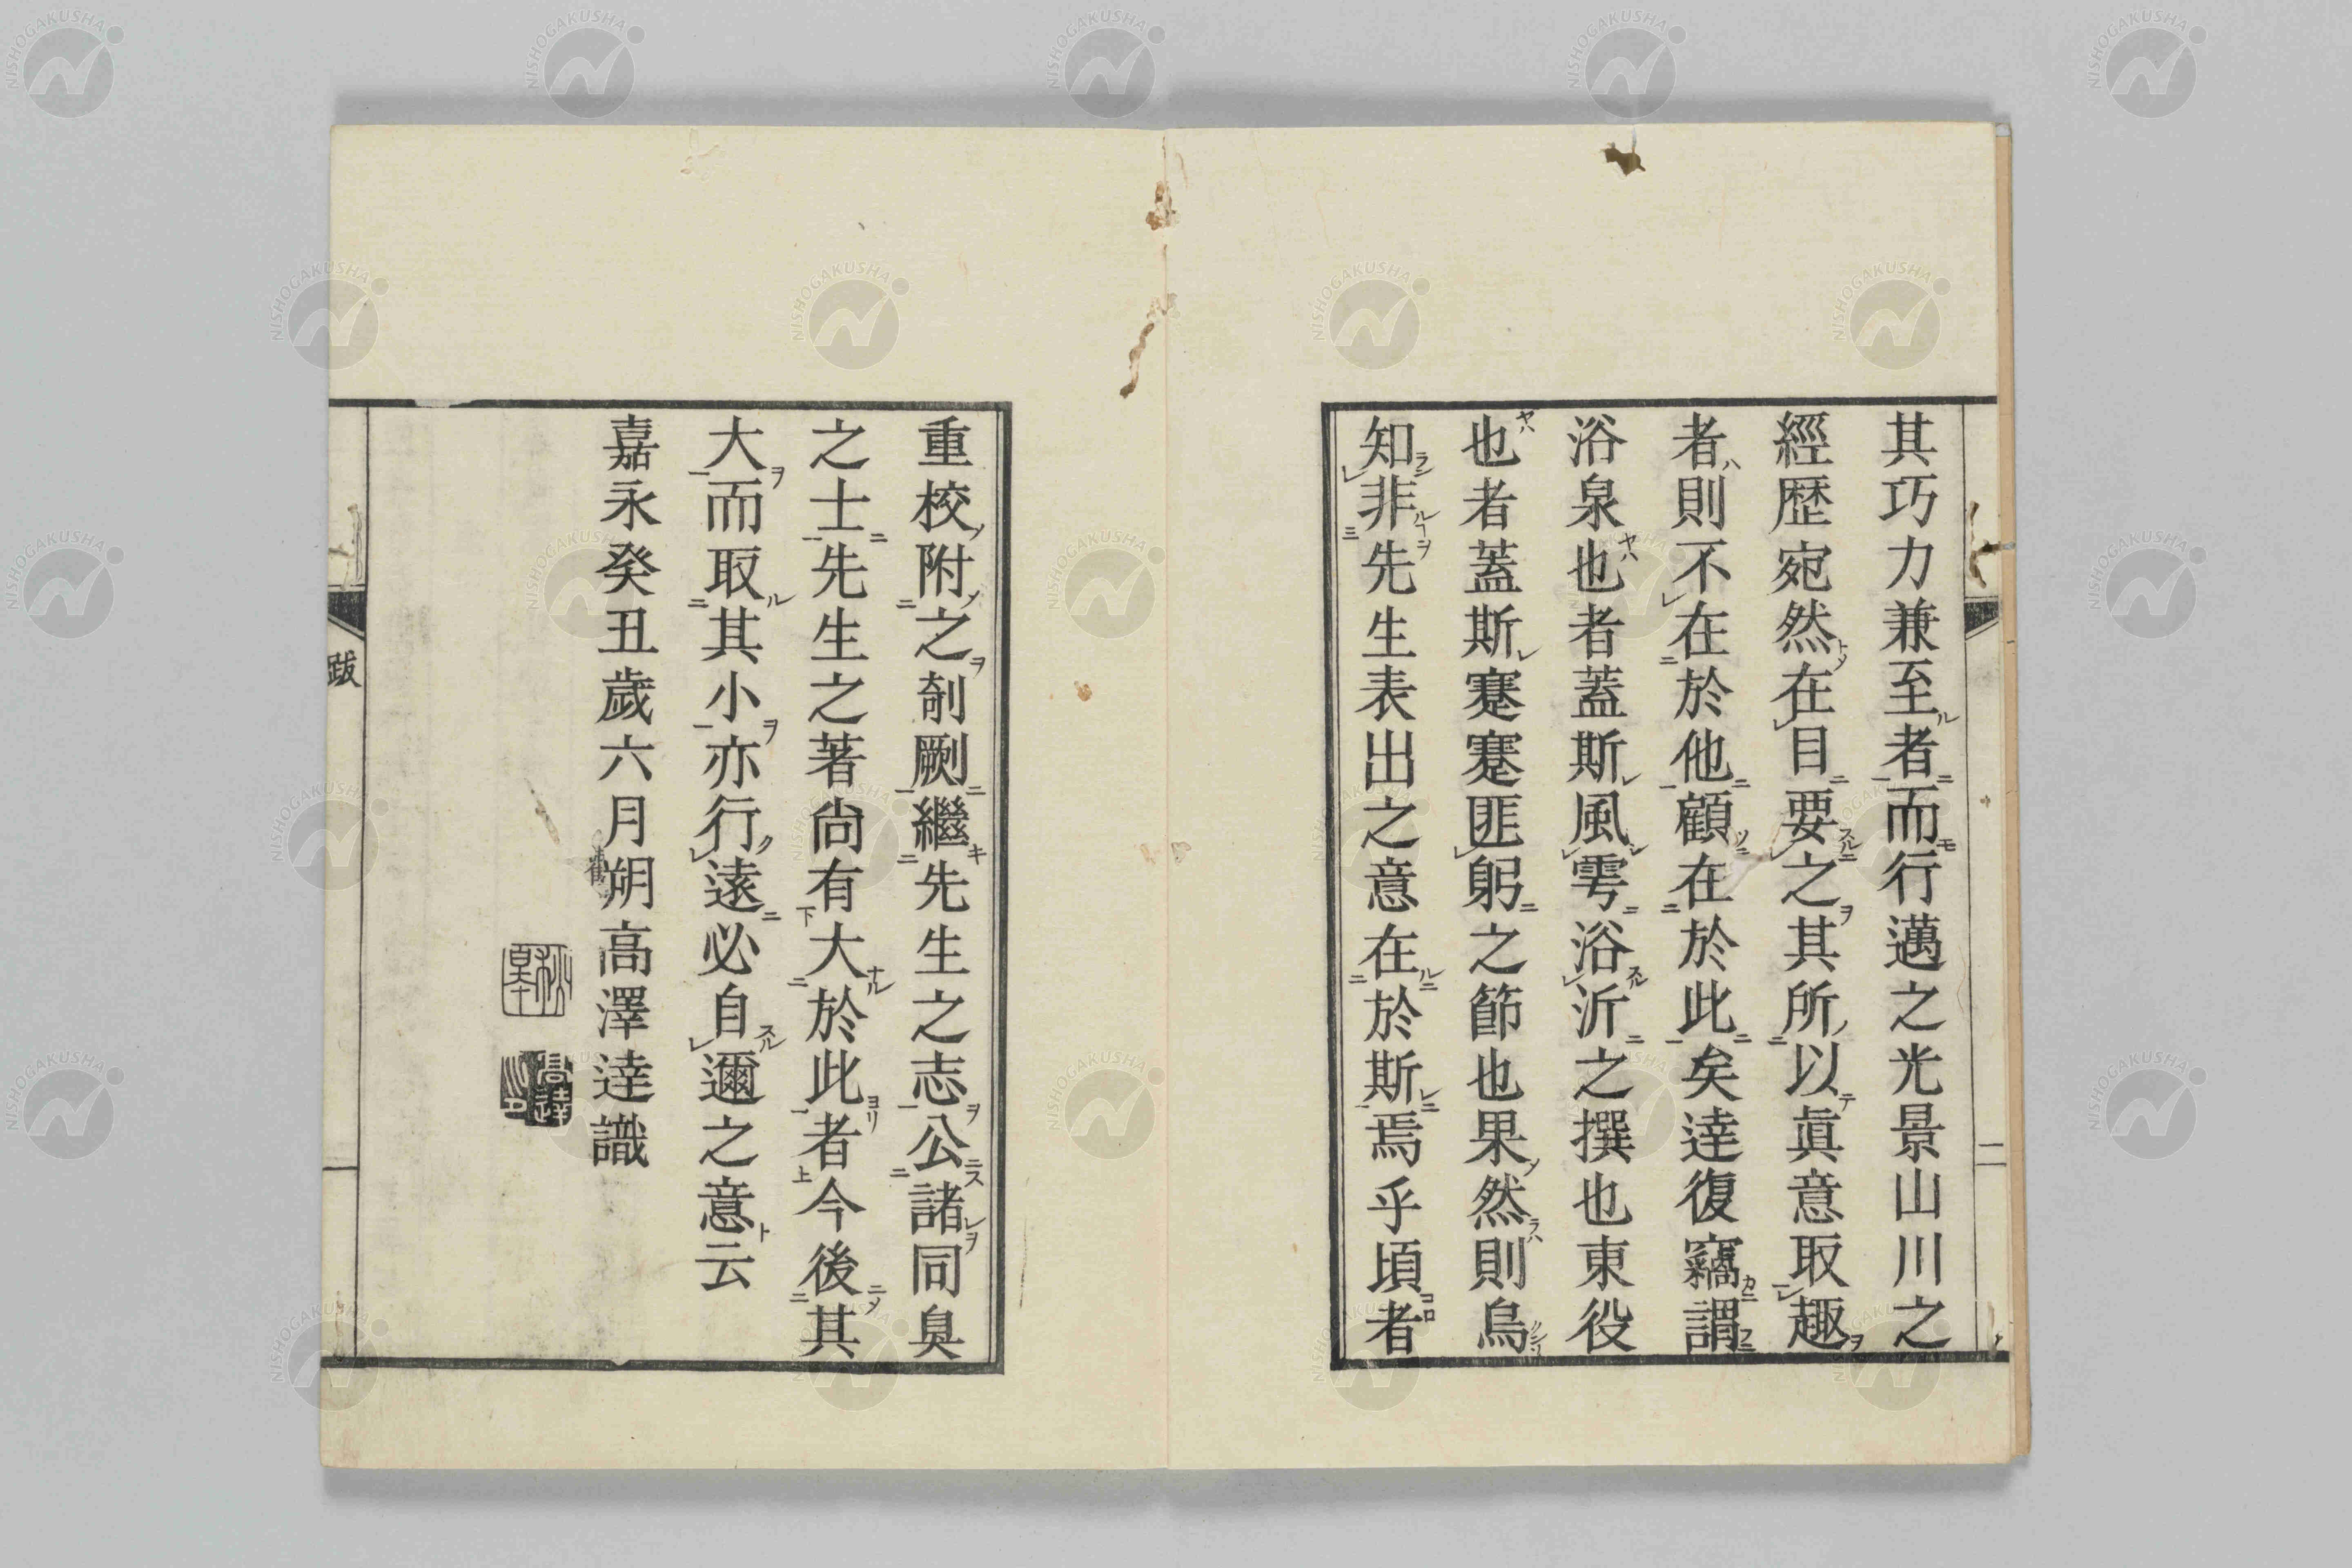 其巧力兼至者而行邁之光景山川之
經歴宛然在目要之其所以眞意取趣
者則不在於他顧在於此矣達復竊謂
浴泉也者蓋斯風雩浴沂之撰也東役
也者蓋斯蹇蹇匪躬之節也果然則烏
知非先生表出之意在於斯焉乎頃者
重校附之剞劂繼先生之志公諸同臭
之士先生之著尚有大於此者今後其
大而取其小亦行遠必自邇之意云
嘉永癸丑歲六月朔高澤達識
跋
二
NISHOGAKUSHA